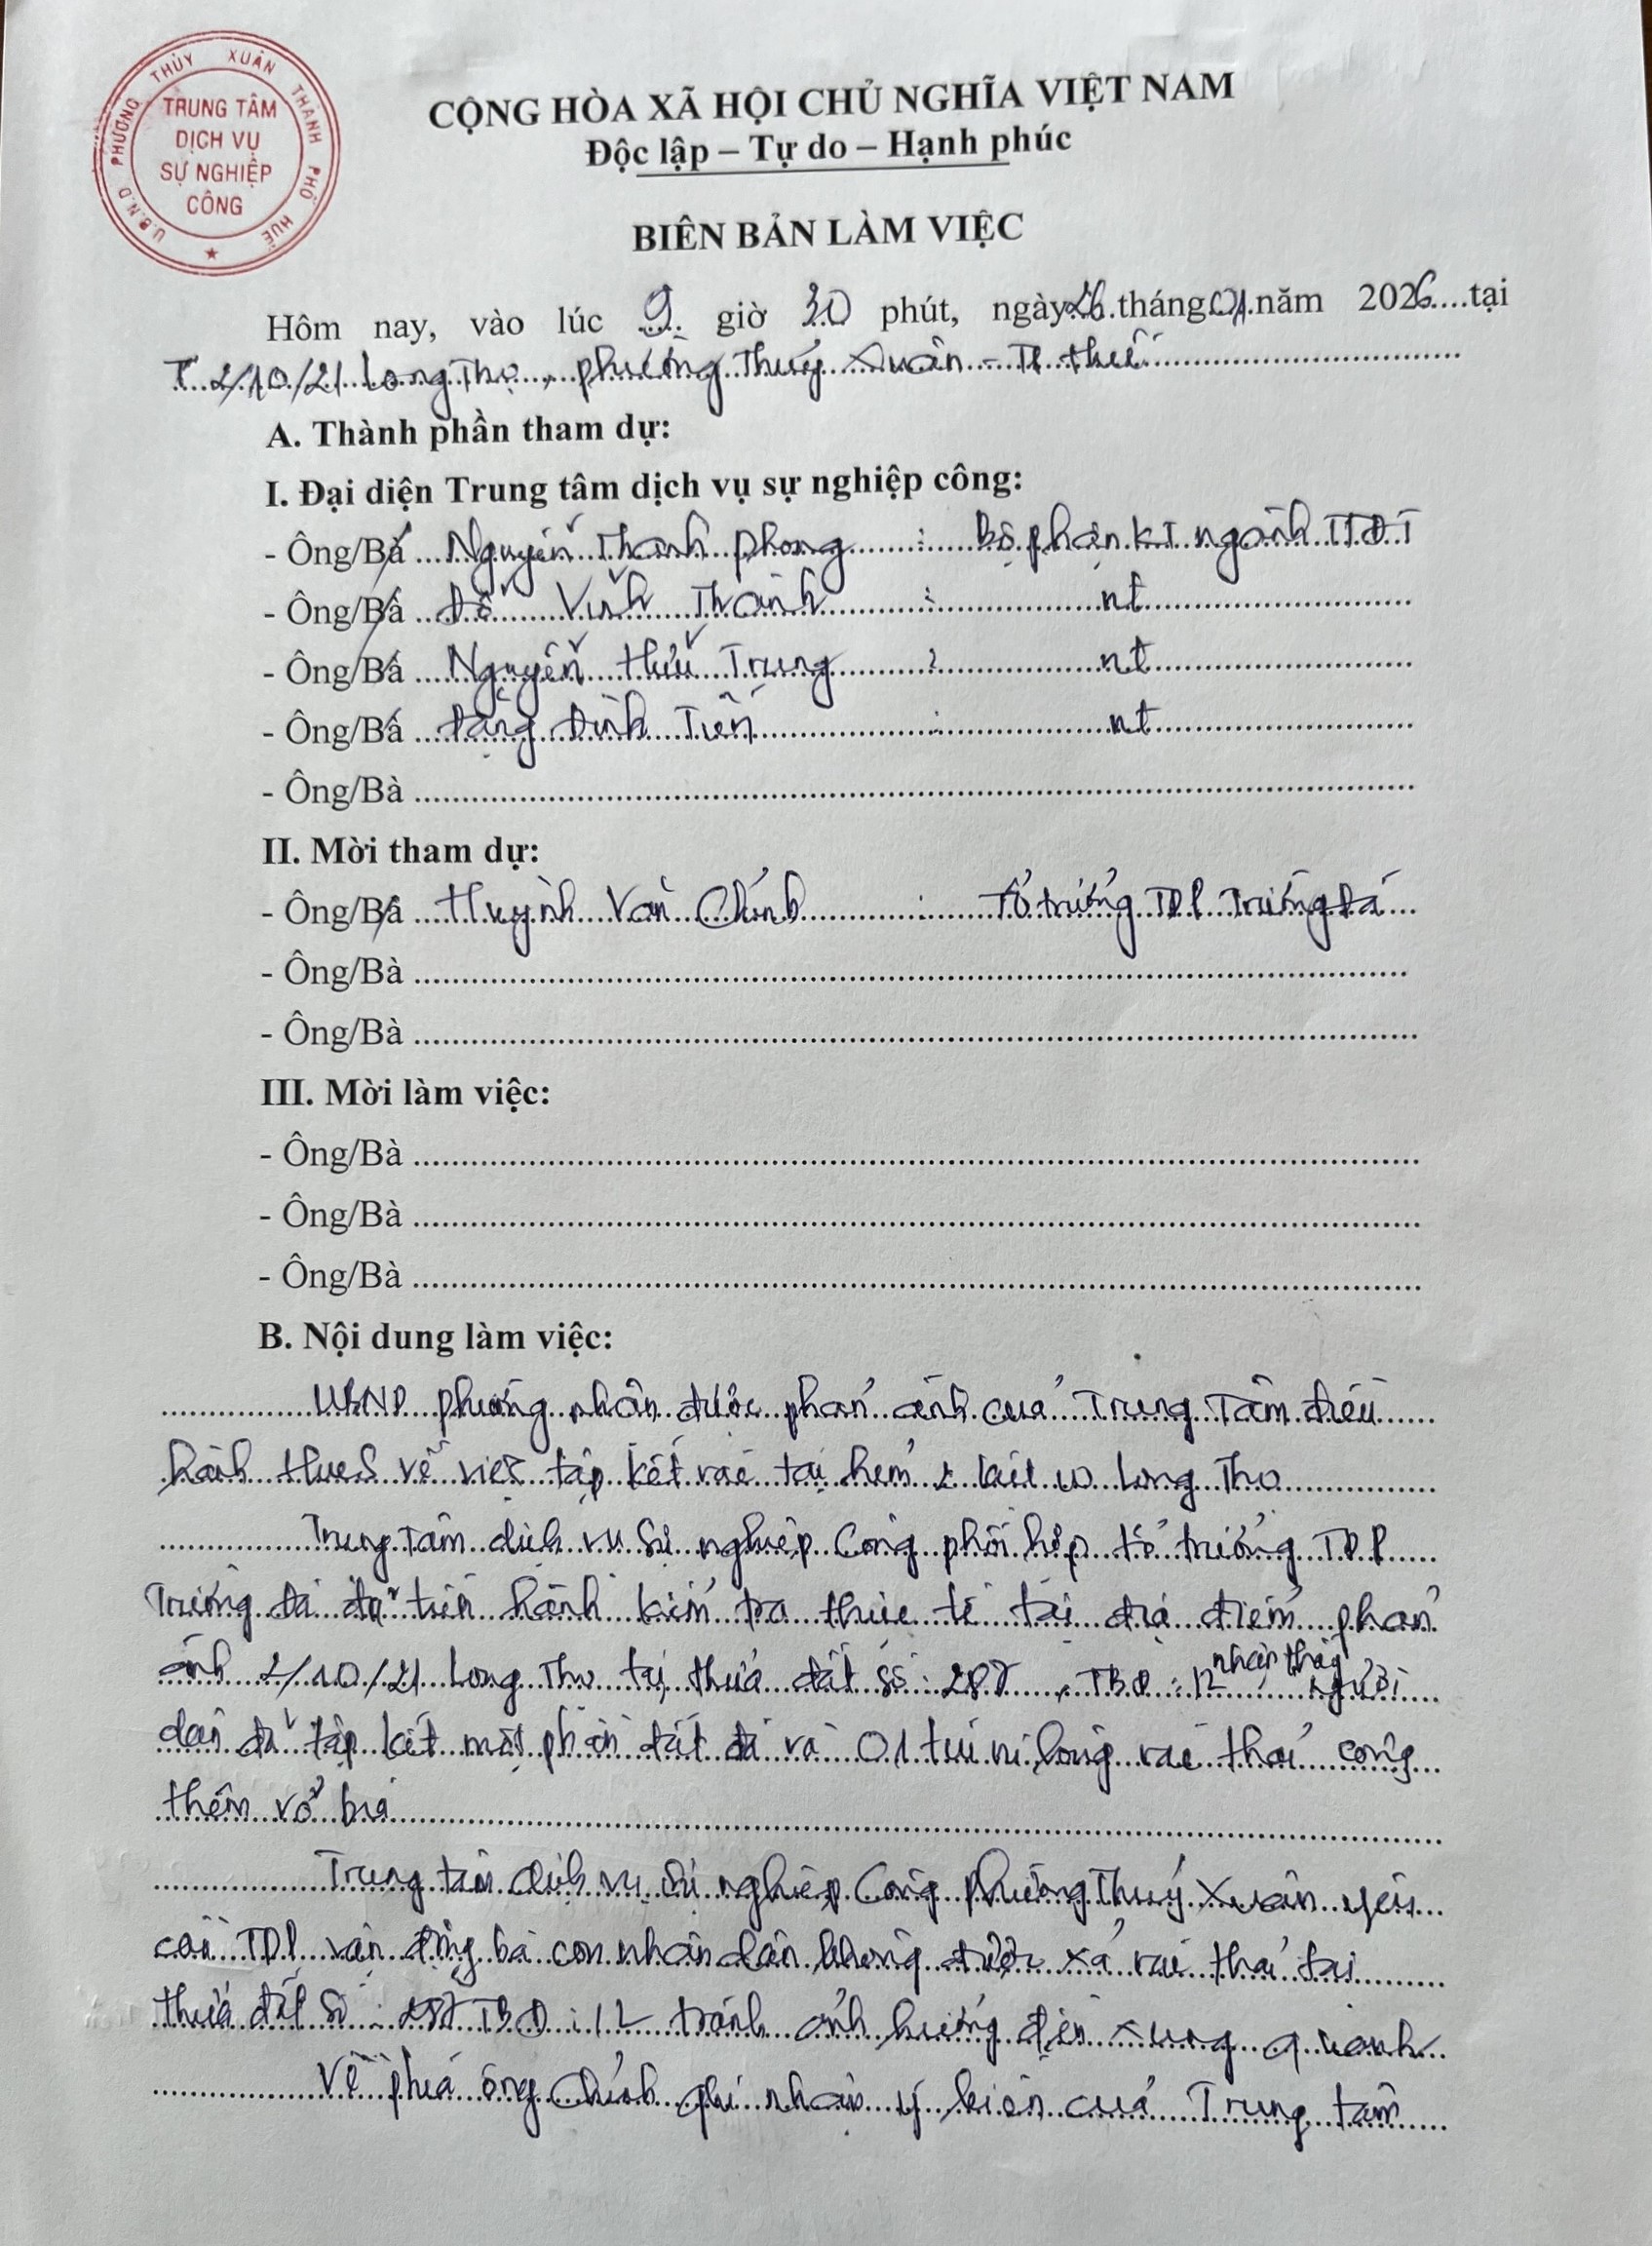 U.B.N.D PHƯỜNG THỦY XUÂN THÀNH PHỐ HUẾ
TRUNG TÂM
DỊCH VỤ
SỰ NGHIỆP
CÔNG
CỘNG HÒA XÃ HỘI CHỦ NGHĨA VIỆT NAM
Độc lập – Tự do – Hạnh phúc
BIÊN BẢN LÀM VIỆC
Hôm nay, vào lúc 9 giờ 30 phút, ngày 26 tháng 01 năm 2026 tại
2/10/21 Long Thọ, phường Thủy Xuân - TP Huế
A. Thành phần tham dự:
I. Đại diện Trung tâm dịch vụ sự nghiệp công:
- Ông/Bà Nguyễn Thanh Phong : Bộ phận kT ngành TTĐT
- Ông/Bà Đỗ Vĩnh Thành : nt
- Ông/Bà Nguyễn Hữu Trung : nt
- Ông/Bà Đặng Đình Tiến : nt
- Ông/Bà
II. Mời tham dự:
- Ông/Bà Huỳnh Văn Chính : Tổ trưởng TDP Trường Đá
- Ông/Bà
- Ông/Bà
III. Mời làm việc:
- Ông/Bà
- Ông/Bà
- Ông/Bà
B. Nội dung làm việc:
UBND phường nhận được phản ánh của Trung Tâm điều
hành HueS về việc tập kết rác tại hẻm 2 kiệt 10 Long Thọ
Trung Tâm dịch vụ sự nghiệp Công phối hợp tổ trưởng TDP
Trường Đá đã tiến hành kiểm tra thực tế tại địa điểm phản
ánh 2/10/21 Long Thọ tại thửa đất số: 287, TBĐ: 12 nhận thấy người
dân đã tập kết một phần đất đá và 01 túi ni lông rác thải cộng
thêm vỏ bia
Trung tâm dịch vụ sự nghiệp Công phường Thủy Xuân yêu
cầu TDP vận động bà con nhân dân không được xả rác thải tại
thửa đất số: 287 TBĐ: 12 tránh ảnh hưởng đến xung quanh
Về phía ông Chính ghi nhận ý kiến của Trung tâm